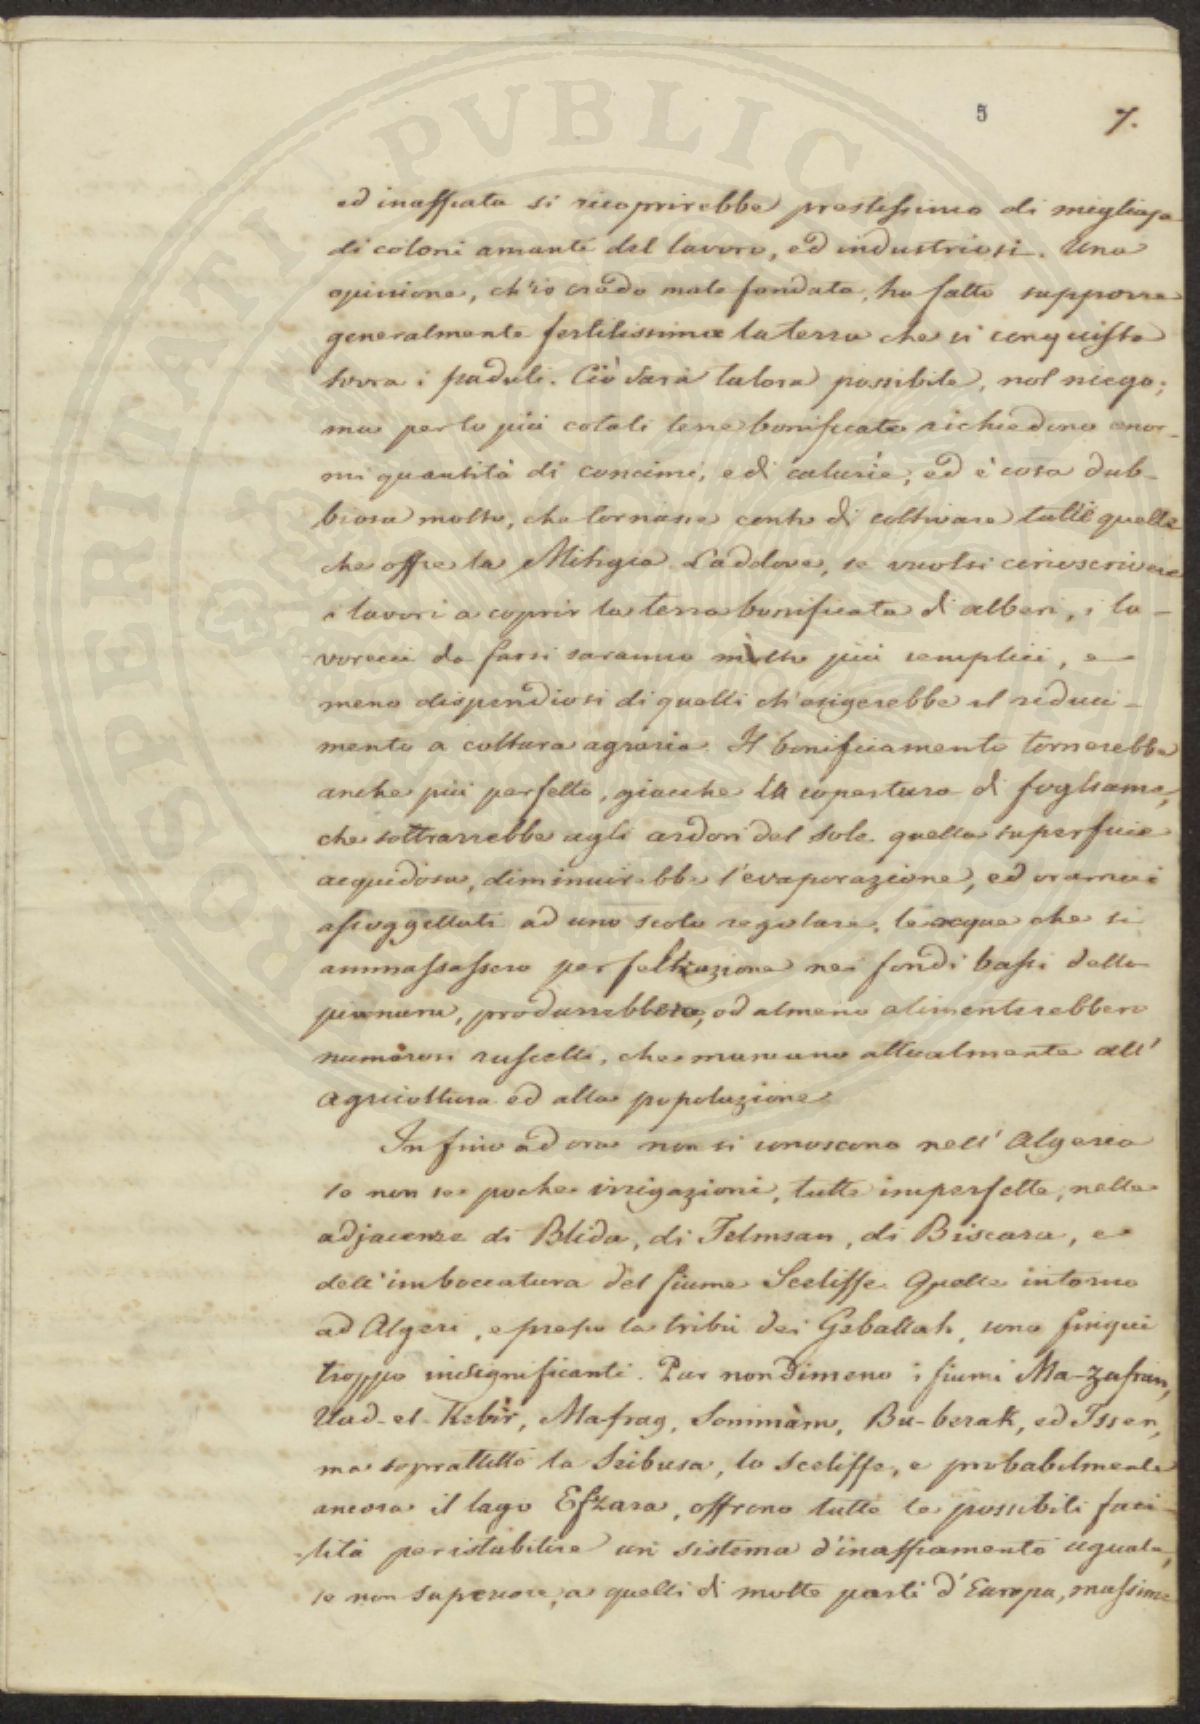 5 7.
ed inaffiata si ricoprirebbe prestissimo di migliaja
di coloni amanti del lavoro, ed industriosi. Una
opinione, ch'io credo male fondata, ha fatto supporre
generalmente fertilissima la terra che si conquista
sovra i paduli. Ciò sarà talora possibile, nol niego;
ma per lo più cotali terre bonificate richiedono enor-
mi quantità di concimi, e di caturie; ed è cosa dub-
biosa molto, che tornasse conto di coltivare tutte quelle
che offre la Mitigia. Laddove, se vuolsi circoscrivere
i lavori a coprir la terra bonificata di alberi, i la-
vorecci da farsi saranno molto più semplici, e
meno dispendiosi di quelli ch'esigerebbe il riduci-
mento a coltura agraria. Il bonificamento tornerebbe
anche più perfetto, giacche la copertura di fogliame,
che sottrarrebbe agli ardori del sole quella superficie
acquidosa, diminuirebbe l'evaporazione, ed oramai
assoggettati ad uno scolo regolare, le acque che si
ammassassero per feltrazione nei fondi bassi della
pianura, produrrebbero, od almeno alimenterebbero
numerosi ruscelli, che mancano attualmente all'
agricoltura ed alla popolazione.
In fino ad ora non si conoscono nell'Algeria
se non se poche irrigazioni, tutte imperfette, nelle
adjacenze di Blida, di Telmsan, di Biscara, e
dell'imboccatura del fiume Sceliffe. Quelle intorno
ad Algeri, e presso la tribù dei Geballah, sono finqui
troppo insignificanti. Pur nondimeno i fiumi Ma-zafran,
Uad-el-Kebir, Mafrag, Sommàm, Bu-berak, ed Isser,
ma soprattutto la Seibusa, lo Sceliffe, e probabilmente
ancora il lago Efzara, offrono tutte le possibili faci-
lità per istabilire un sistema d'inaffiamento uguale,
se non superiore, a quelli di molte parti d'Europa, massime
PROSPERITATI PUBLICAE